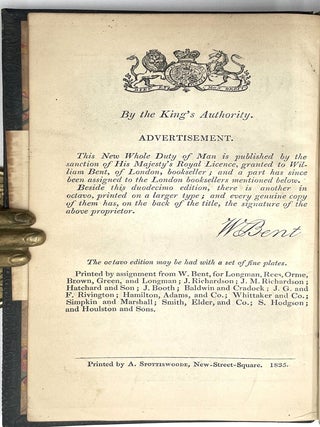 By the King's Authority.
ADVERTISEMENT.
This New Whole Duty of Man is published by the
sanction of His Majesty's Royal Licence, granted to Wil-
liam Bent, of London, bookseller; and a part has since
been assigned to the London booksellers mentioned below.
Beside this duodecimo edition, there is another in
octavo, printed on a larger type; and every genuine copy
of them has, on the back of the title, the signature of the
above proprietor.
W Bent
The octavo edition may be had with a set of fine plates.
Printed by assignment from W. Bent, for Longman, Rees, Orme,
Brown, Green, and Longman; J. Richardson; J. M. Richardson;
Hatchard and Son; J. Booth; Baldwin and Cradock; J. G. and
F. Rivington; Hamilton, Adams, and Co.; Whittaker and Co.;
Simpkin and Marshall; Smith, Elder, and Co.; S. Hodgson;
and Houlston and Sons.
Printed by A. SPOTTISWOODE, New-Street-Square. 1835.